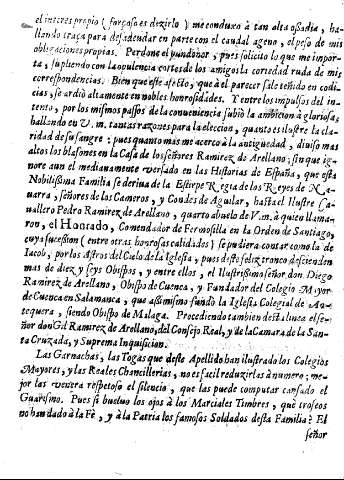 el interes propio (forçoso es dezirlo) me conduxo à tan alta ossadia, ha-
llando traça para desadeudar en parte con el caudal ageno, el peso de mis
obligaciones propias. Perdone el pundonor, pues solicito lo que me impor-
ta, supliendo con la opulencia cortès de los amigos la cortedad ruda de mis
correspondencias. Bien que este afecto, que à el parecer sale teñido en codi-
cias, se ardiò altamente en nobles honrosidades. Y entre los impulsos del in-
tento, por los mismos passos de la conveniencia subiò la ambicion à gloriosa;
hallando en V. m. tantas razones para la eleccion, quanto es ilustre la cla-
ridad de su sangre: pues quanto mas me acerco à la antigüedad, diviso mas
altos los blasones en la Casa de los señores Ramirez de Arellano; sin que ig-
nore aun el medianamente versado en las Historias de España, que esta
Nobilissima Familia se deriva de la Estirpe Regia de los Reyes de Na-
uarra, señores de los Cameros, y Condes de Aguilar, hasta el Ilustre Ca-
uallero Pedro Ramirez de Arellano, quarto abuelo de V. m. à quien llama-
ron, el Hontado, Comendador de Fermosilla en la Orden de Santiago,
cuya sucession (entre otras honrosas calidades) se pudiera contar como la de
Iacob, por los Astros del Cielo de la Iglesia, pues deste feliz tronco descienden
mas de diez y seys Obispos, y entre ellos, el Ilustrissimo señor don Diego
Ramirez de Arellano, Obispo de Cuenca, y Fundador del Colegio Mayor
de Cuenca en Salamanca, que assimismo fundò la Iglesia Colegial de An-
tequera, siendo Obispo de Malaga. Procediendo tambien desta linea el se-
ñor don Gil Ramirez de Arellano, del Consejo Real, y de la Camara de la San-
ta Cruzada, y Suprema Inquisicion.
Las Garnachas, las Togas que deste Apellido han ilustrado los Colegios
Mayores, y las Reales Chancillerias, no es facil reduzirlas à numero; me-
jor las venera respetoso el silencio, que las puede computar cansado el
Guarismo. Pues si buelvo los ojos à los Marciales Timbres, què troseos
no han dado à la Fè, y à la Patria los famosos Soldados desta Familia? El
señor